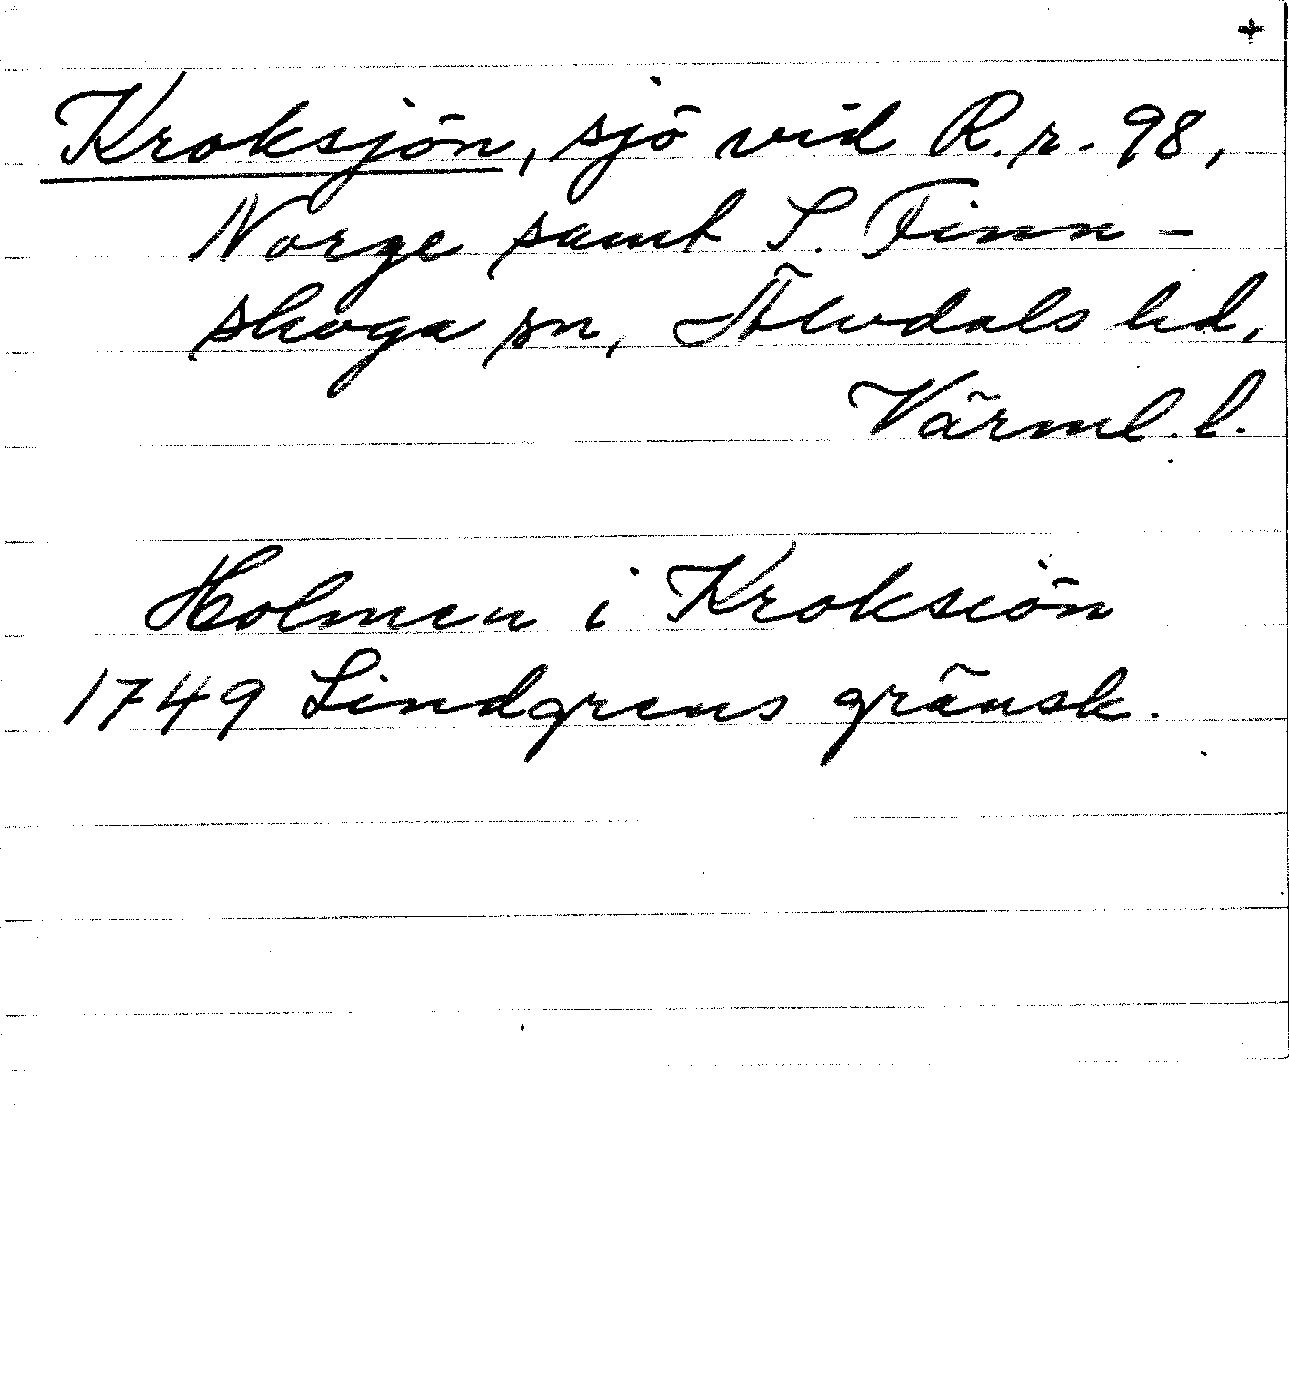 +
Kroksjön, sjö vid R.r. 98,
Norge samt S. Finn-
skoga sn, Älvdals hd,
Värml. l.
Holmen i Kroksiön
1749 Lindgrens gränsk.